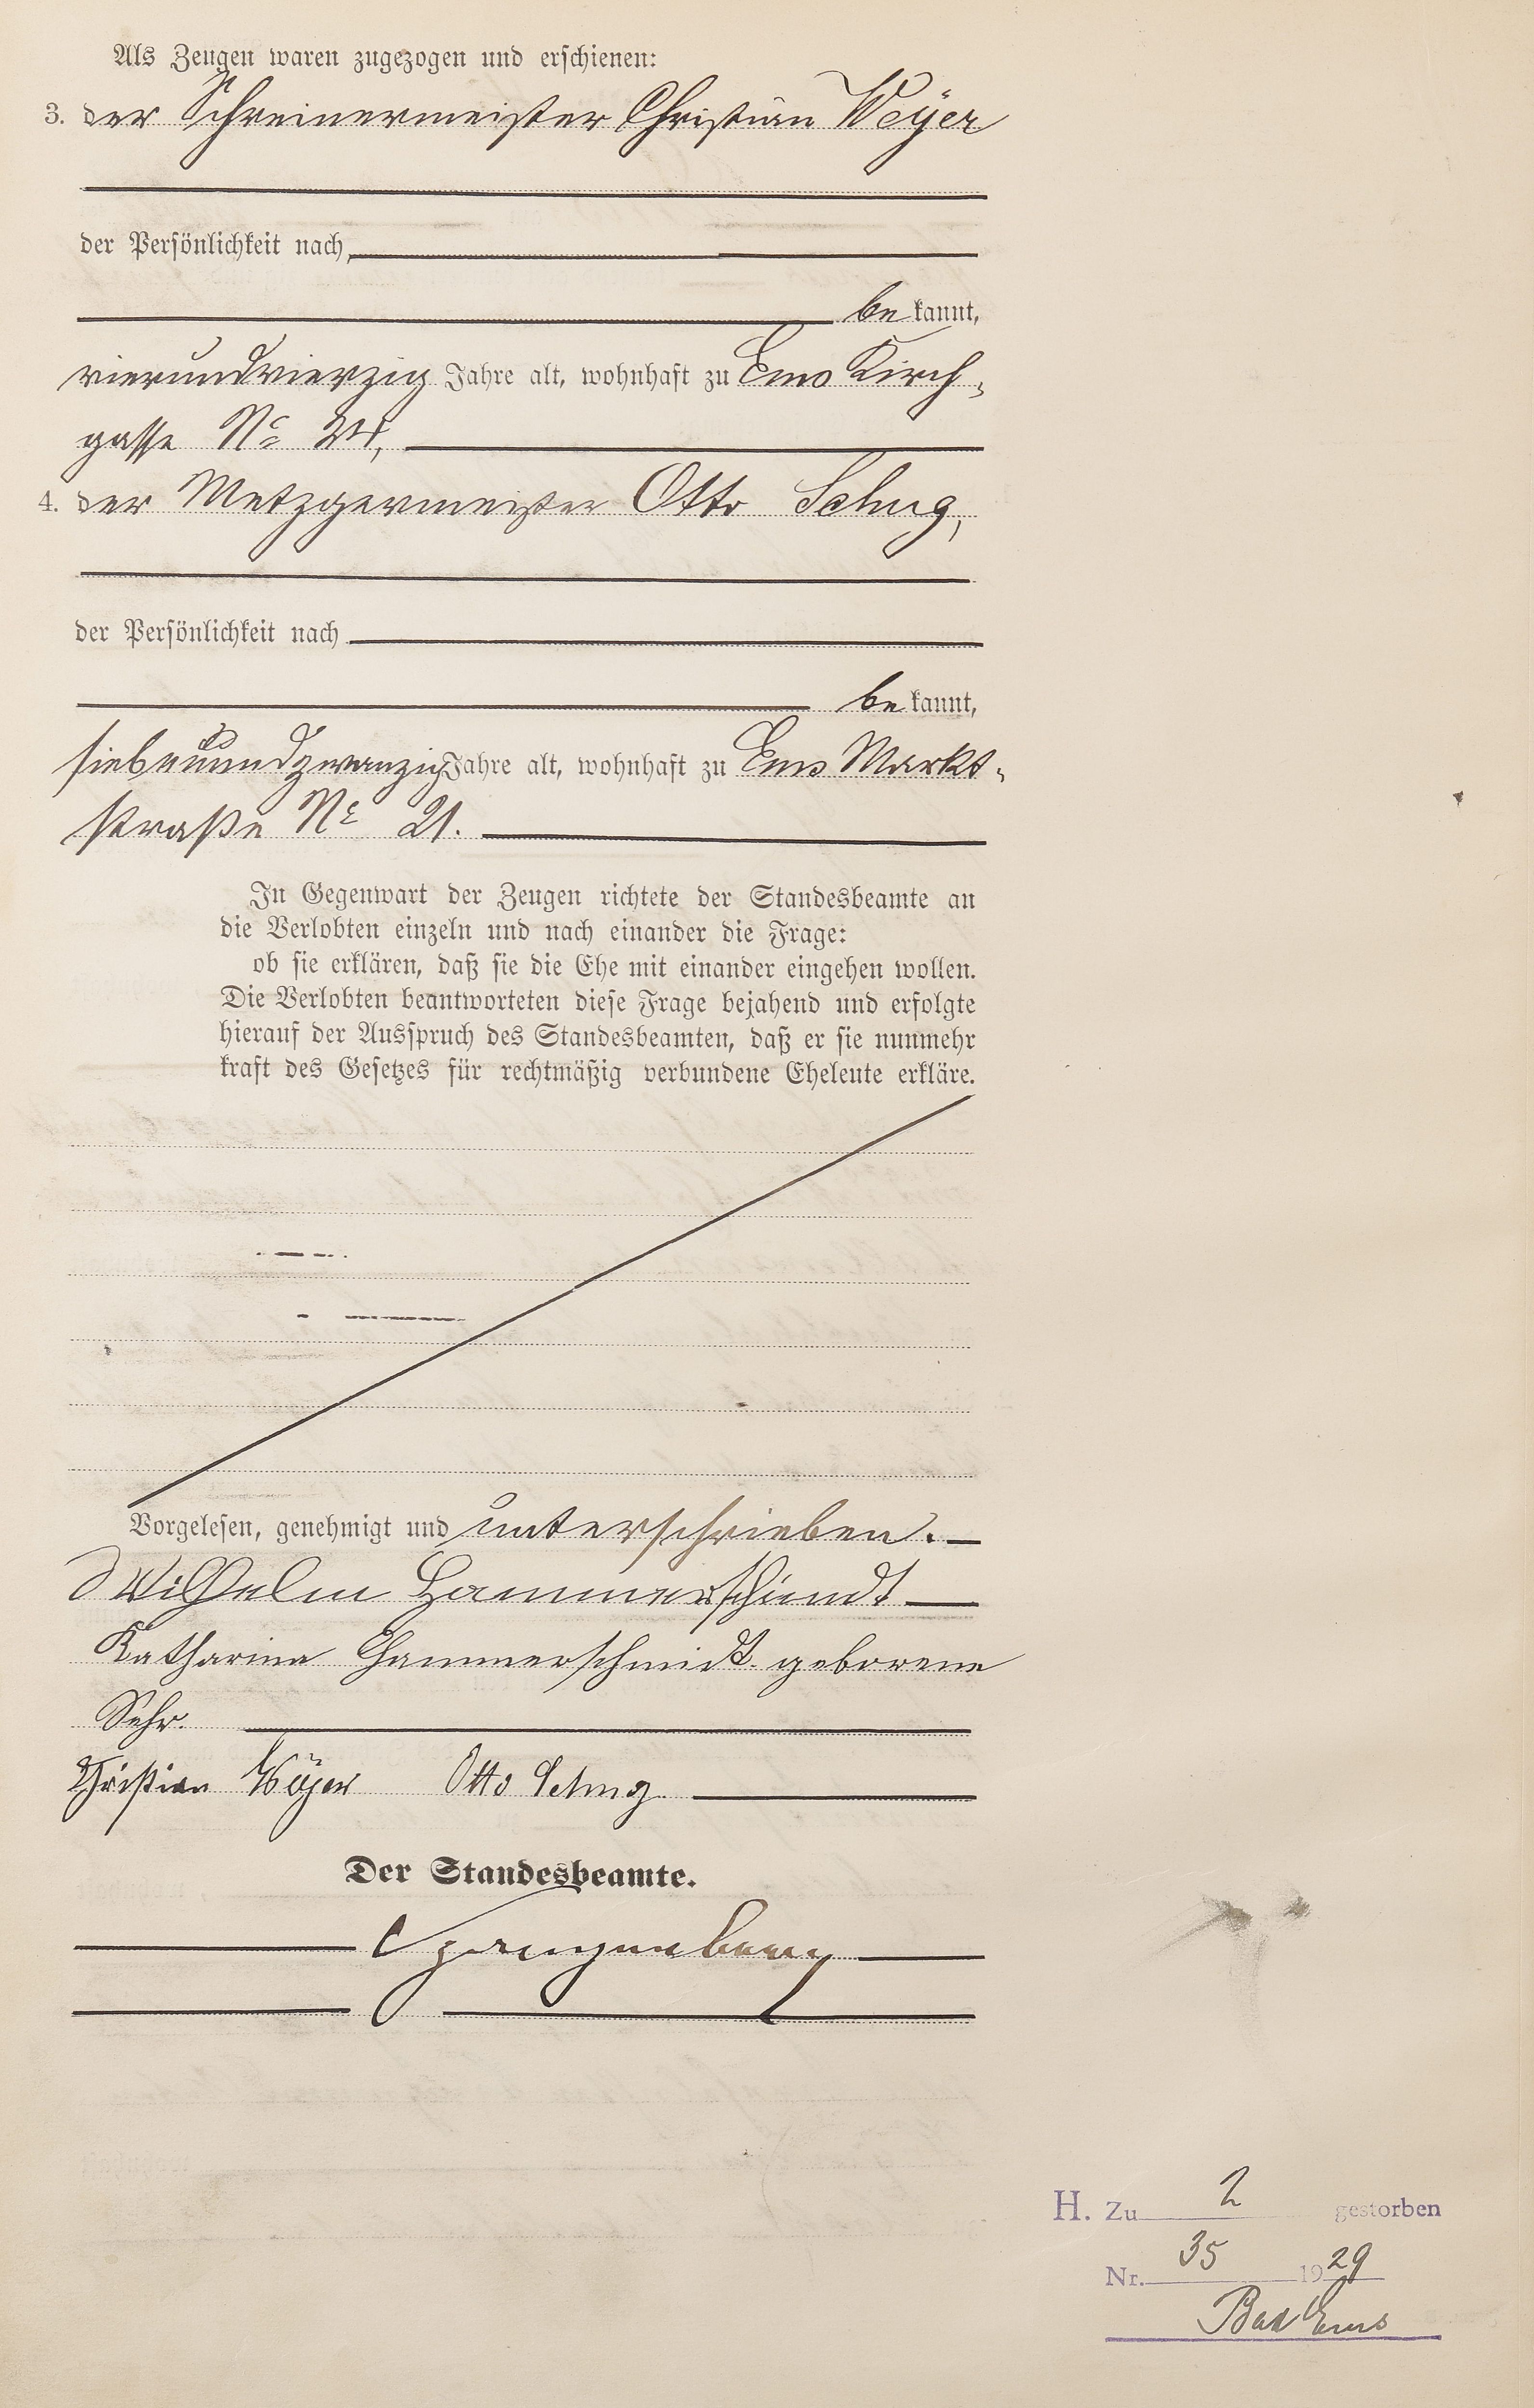 Als Zeugen waren zugezogen und erschienen:
3. der Schreinermeister Christian Weÿer
der Persönlichkeit nach,
be kannt,
vierundvierzig Jahre alt, wohnhaft zu Ems Kirch-
gasse No 24,
4. der Metzgermeister Otto Schug,
der Persönlichkeit nach
be kannt,
siebenundzwanzig Jahre alt, wohnhaft zu Ems Markt-
straße No 21.
In Gegenwart der Zeugen richtete der Standesbeamte an
die Verlobten einzeln und nach einander die Frage:
ob sie erklären, daß sie die Ehe mit einander eingehen wollen.
Die Verlobten beantworteten diese Frage bejahend und erfolgte
hierauf der Ausspruch des Standesbeamten, daß er sie nunmehr
kraft des Gesetzes für rechtmäßig verbundene Eheleute erkläre.
Vorgelesen, genehmigt und unterschrieben.
Wilhelm Hammerschmidt
Katharina Hammerschmidt geborene
Christian Weÿer Otto Schug
Der Standesbeamte.
H. Zu 2 gestorben
Nr. 35 1929
Bad Ems